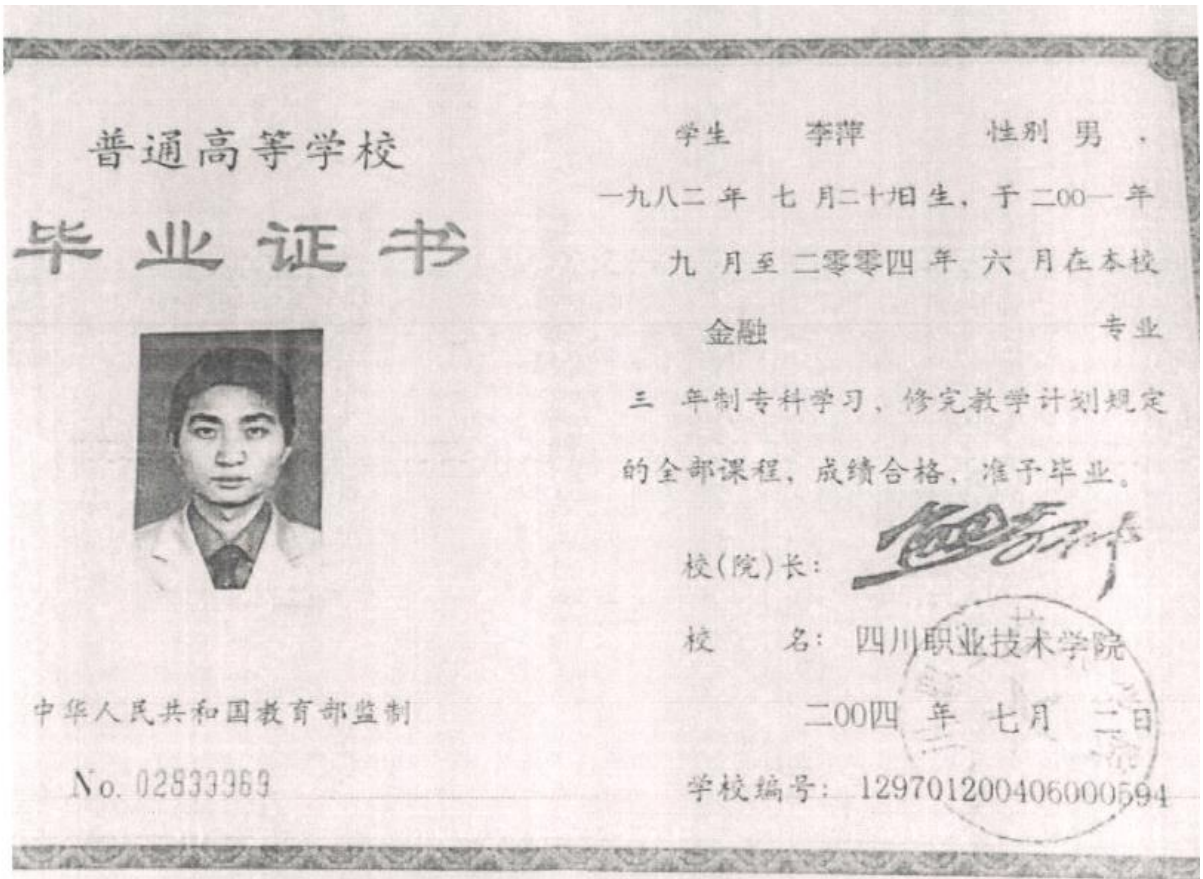 普通高等学校
毕业证书
中华人民共和国教育部监制
No. 02833969
学生 李萍 性别 男 ,
一九八二 年 七 月二十九日生, 于 二00一 年
九 月至 二零零四 年 六 月在本校
金融 专业
三 年制专科学习、修完教学计划规定
的全部课程、成绩合格、准予毕业。
校(院)长:
校 名: 四川职业技术学院
二00四 年 七月 二日
学校编号: 129701200406000594